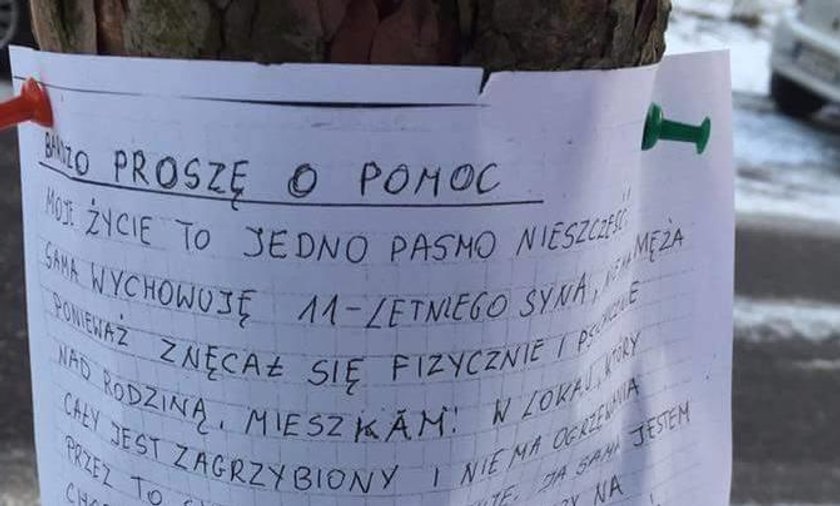 BARDZO PROSZĘ O POMOC
MOJE ŻYCIE TO JEDNO PASMO NIESZCZĘŚĆ
SAMA WYCHOWUJĘ 11-LETNIEGO SYNA, NIE MAM MĘŻA
PONIEWAŻ ZNĘCAŁ SIĘ FIZYCZNIE I PSYCHICZNIE
NAD RODZINĄ, MIESZKAM! W LOKALU, KTÓRY
CAŁY JEST ZAGRZYBIONY I NIE MA OGRZEWANIA
PRZEZ TO JA SAMA JESTEM
NA